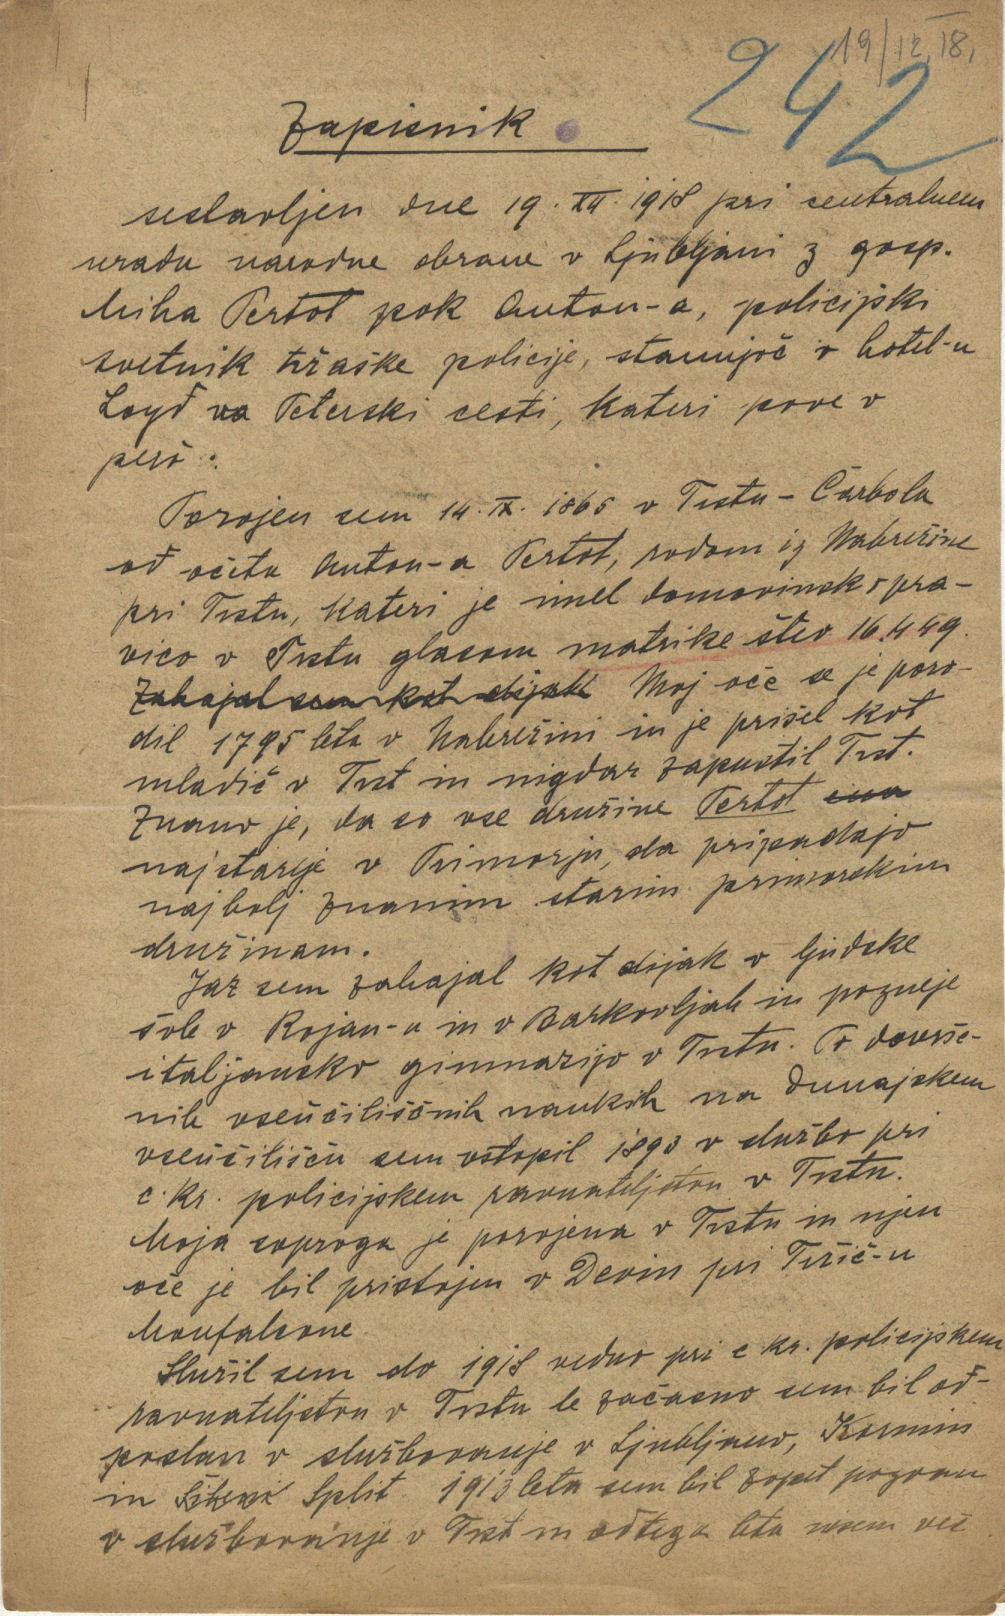 19/12.18.
242
Zapisnik
sestavljen dne 19. XII. 1918 pri centralnem
uradu narodne obrane v Ljubljani z gosp.
Miha Pertot pok Anton-a, policijski
svetnik tržaške policije, stanujoč v hotel-u
Loyd na Peterski cesti, kateri pove v
pero:
Porojen sem 14. IX. 1865 v Trstu - Čarbola
od očeta Anton-a Pertot, rodom iz Nabrežine
pri Trstu, kateri je imel domovinsko pra-
vico v Trstu glasom matrike štev 16.449.
Zahajal sem kot dijak Moj oče se je poro-
dil 1795 leta v Nabrežini in je prišel kot
mladič v Trst in nigdar zapustil Trst.
Znano je, da so vse družine Pertot ena
najstarije v Primorju, da pripadajo
najbolj znanim starim primorskim
družinam.
Jaz sem zahajal kot dijak v ljudske
šole v Rojan-u in v Barkovljah in pozneje
italjansko gimnazijo v Trstu. Po dovrše-
nih vseučiliščnih naukih na dunajskem
vseučilišču sem vstopil 1893 v službo pri
c. kr. policijskem ravnateljstvu v Trstu.
Moja soproga je porojena v Trstu in njen
oče je bil pristojen v Devin pri Tržič-u
Monfalcone
Služil sem do 1918 vedno pri c kr. policijskem
ravnateljstvu v Trstu le začasno sem bil od-
poslan v službovanje v Ljubljano, Kormin
in Split. 1913 leta sem bil zopet pozvan
v službovanje v Trst in odtega leta nisem več